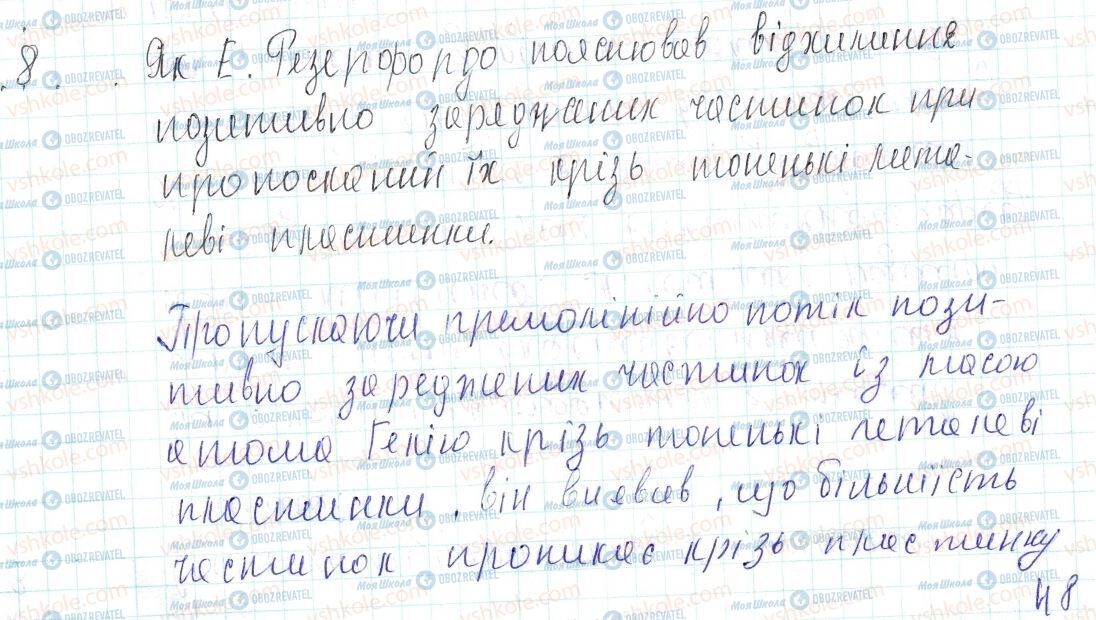 8. Як Е. Резерфордо пояснював відхилення
позитивно заряджених частинок при
пропосканий їх крізь тоненькі мета-
леві пластинки.
Пропускаючи прямолінійно потік пози-
тивно заряджених частинок із масою
атома Гелію крізь тоненькі металеві
пластинки, він виявив, що більшість
частинок проникає крізь пластинку
48